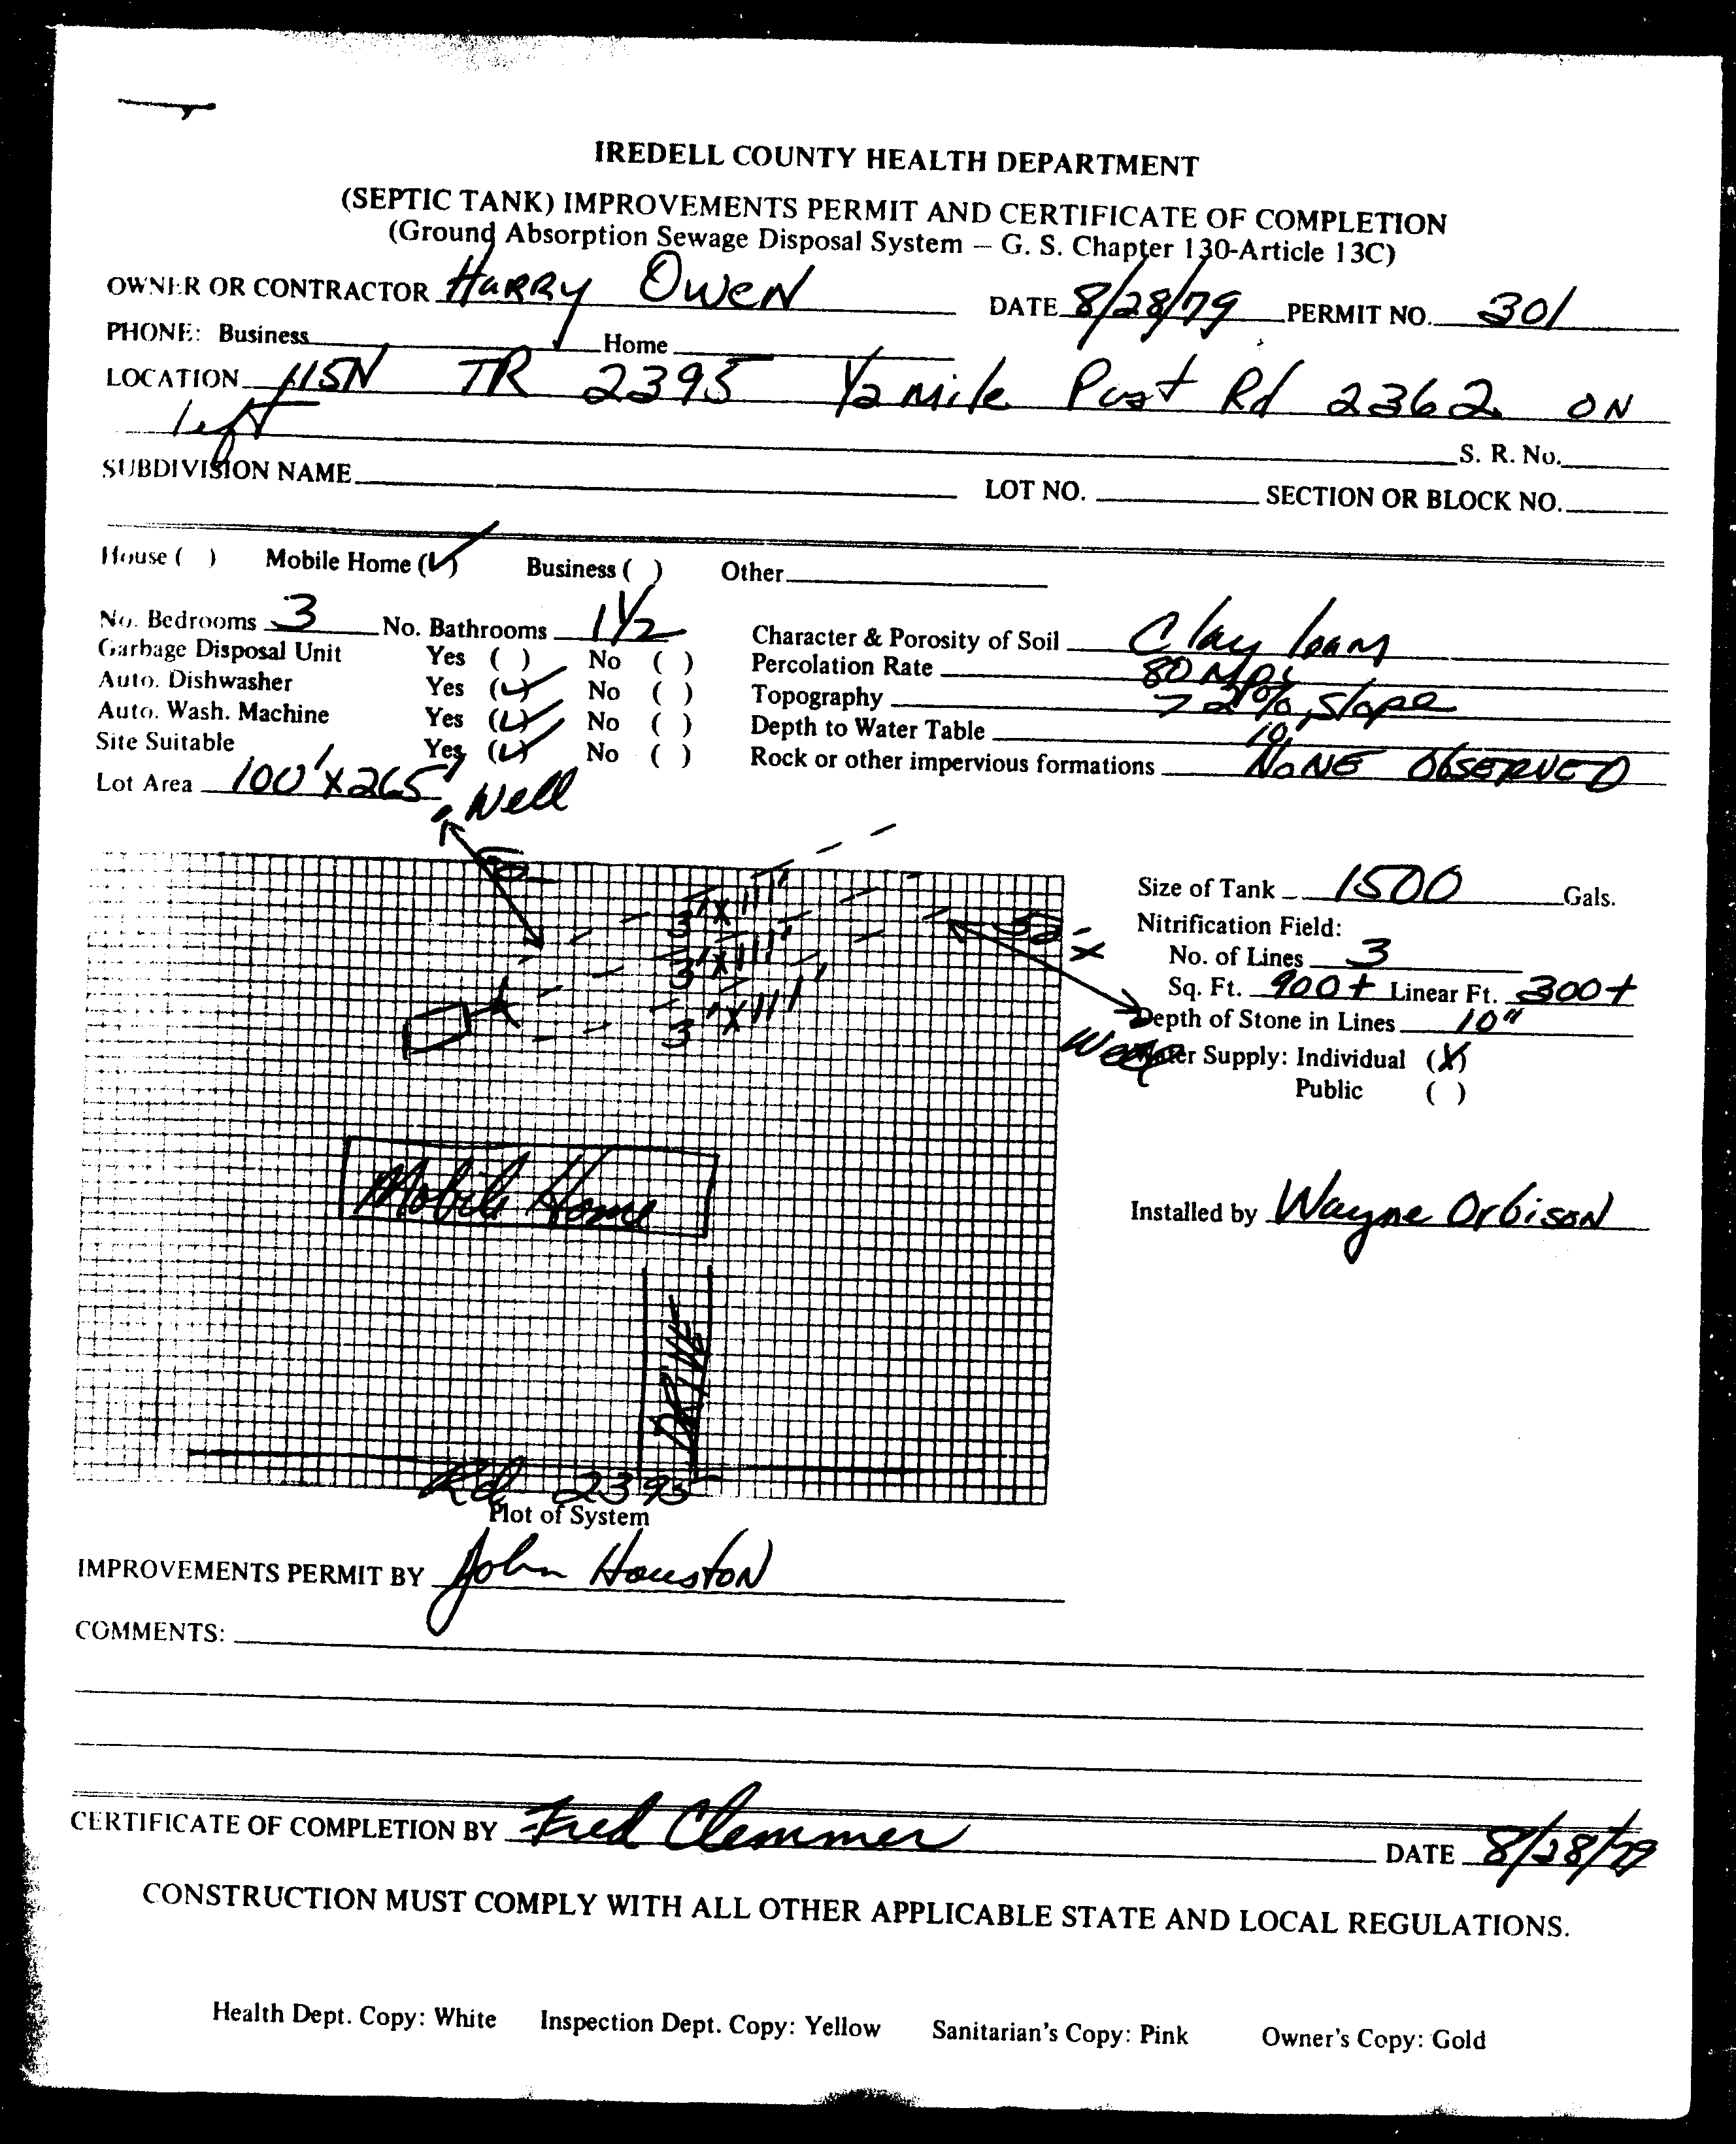 IREDELL COUNTY HEALTH DEPARTMENT
(SEPTIC TANK) IMPROVEMENTS PERMIT AND CERTIFICATE OF COMPLETION
(Ground Absorption Sewage Disposal System — G. S. Chapter 130-Article 13C)
OWNER OR CONTRACTOR HARRY OWEN DATE 8/28/79 PERMIT NO. 301
PHONE: Business Home
LOCATION 115N TR 2395 1/2 mile Past Rd 2362 ON
left
S. R. No.
SUBDIVISION NAME LOT NO. SECTION OR BLOCK NO.
House ( ) Mobile Home (✓) Business ( ) Other
No. Bedrooms 3 No. Bathrooms 1 1/2 Character & Porosity of Soil Clay loam
Garbage Disposal Unit Yes ( ) No ( ) Percolation Rate 80 mpi
Auto. Dishwasher Yes (✓) No ( ) Topography > 2%, slope
Auto. Wash. Machine Yes (✓) No ( ) Depth to Water Table
Site Suitable Yes (✓) No ( ) Rock or other impervious formations NONE OBSERVED
Lot Area 100' X 265'
Well
Size of Tank 1500 Gals.
3' x 111'
Nitrification Field:
3' x 111'
No. of Lines 3
3' x 111'
Sq. Ft. 900+ Linear Ft. 300+
Depth of Stone in Lines 10"
Well
Water Supply: Individual (X)
Public ( )
Mobile Home
Installed by Wayne Orbison
DRIVE
Rd 2395
Plot of System
IMPROVEMENTS PERMIT BY John Houston
COMMENTS:
CERTIFICATE OF COMPLETION BY Fred Clemmer DATE 8/28/79
CONSTRUCTION MUST COMPLY WITH ALL OTHER APPLICABLE STATE AND LOCAL REGULATIONS.
Health Dept. Copy: White Inspection Dept. Copy: Yellow Sanitarian's Copy: Pink Owner's Copy: Gold